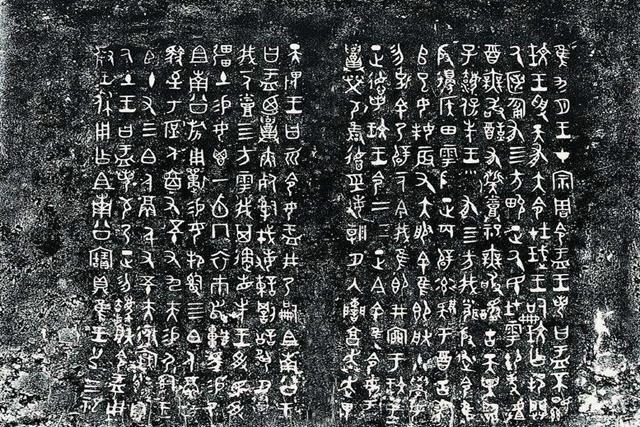 隹九月王才宗周令盂王若曰盂不顯
玟王受天有大令在珷王嗣玟乍邦闢
厥匿匍有四方畯正厥民在雩御事
酉無敢酖有祡蒸祀無敢擾古天異臨
子灋保先王有四方我聞殷墜令隹
殷邊侯田雩殷正百辟率肄于酉古喪
師巳女妹辰有大服余隹即朕小學女
勿克余乃辟一人今我隹即井禀于玟王
正德若玟王令二三正今余隹令女盂
召榮敬雍德經敏朝夕入讕享奔走畏
天畏王曰而令女盂井乃嗣祖南公王
曰盂迺召夾死司戎敏諫罰訟夙夕召
我一人烝四方雩我其遹省先王受民受
疆土易女鬯一卣冂衣巿舄車馬易乃
祖南公旂用狩易女邦司四白人鬲自
馭至于庶人六百又五十又九夫易尸司王
臣十又三白人鬲千又五十夫自
厥土王曰盂若敬乃正勿灋朕令盂用
對王休用乍祖南公寶鼎隹王廿又三祀